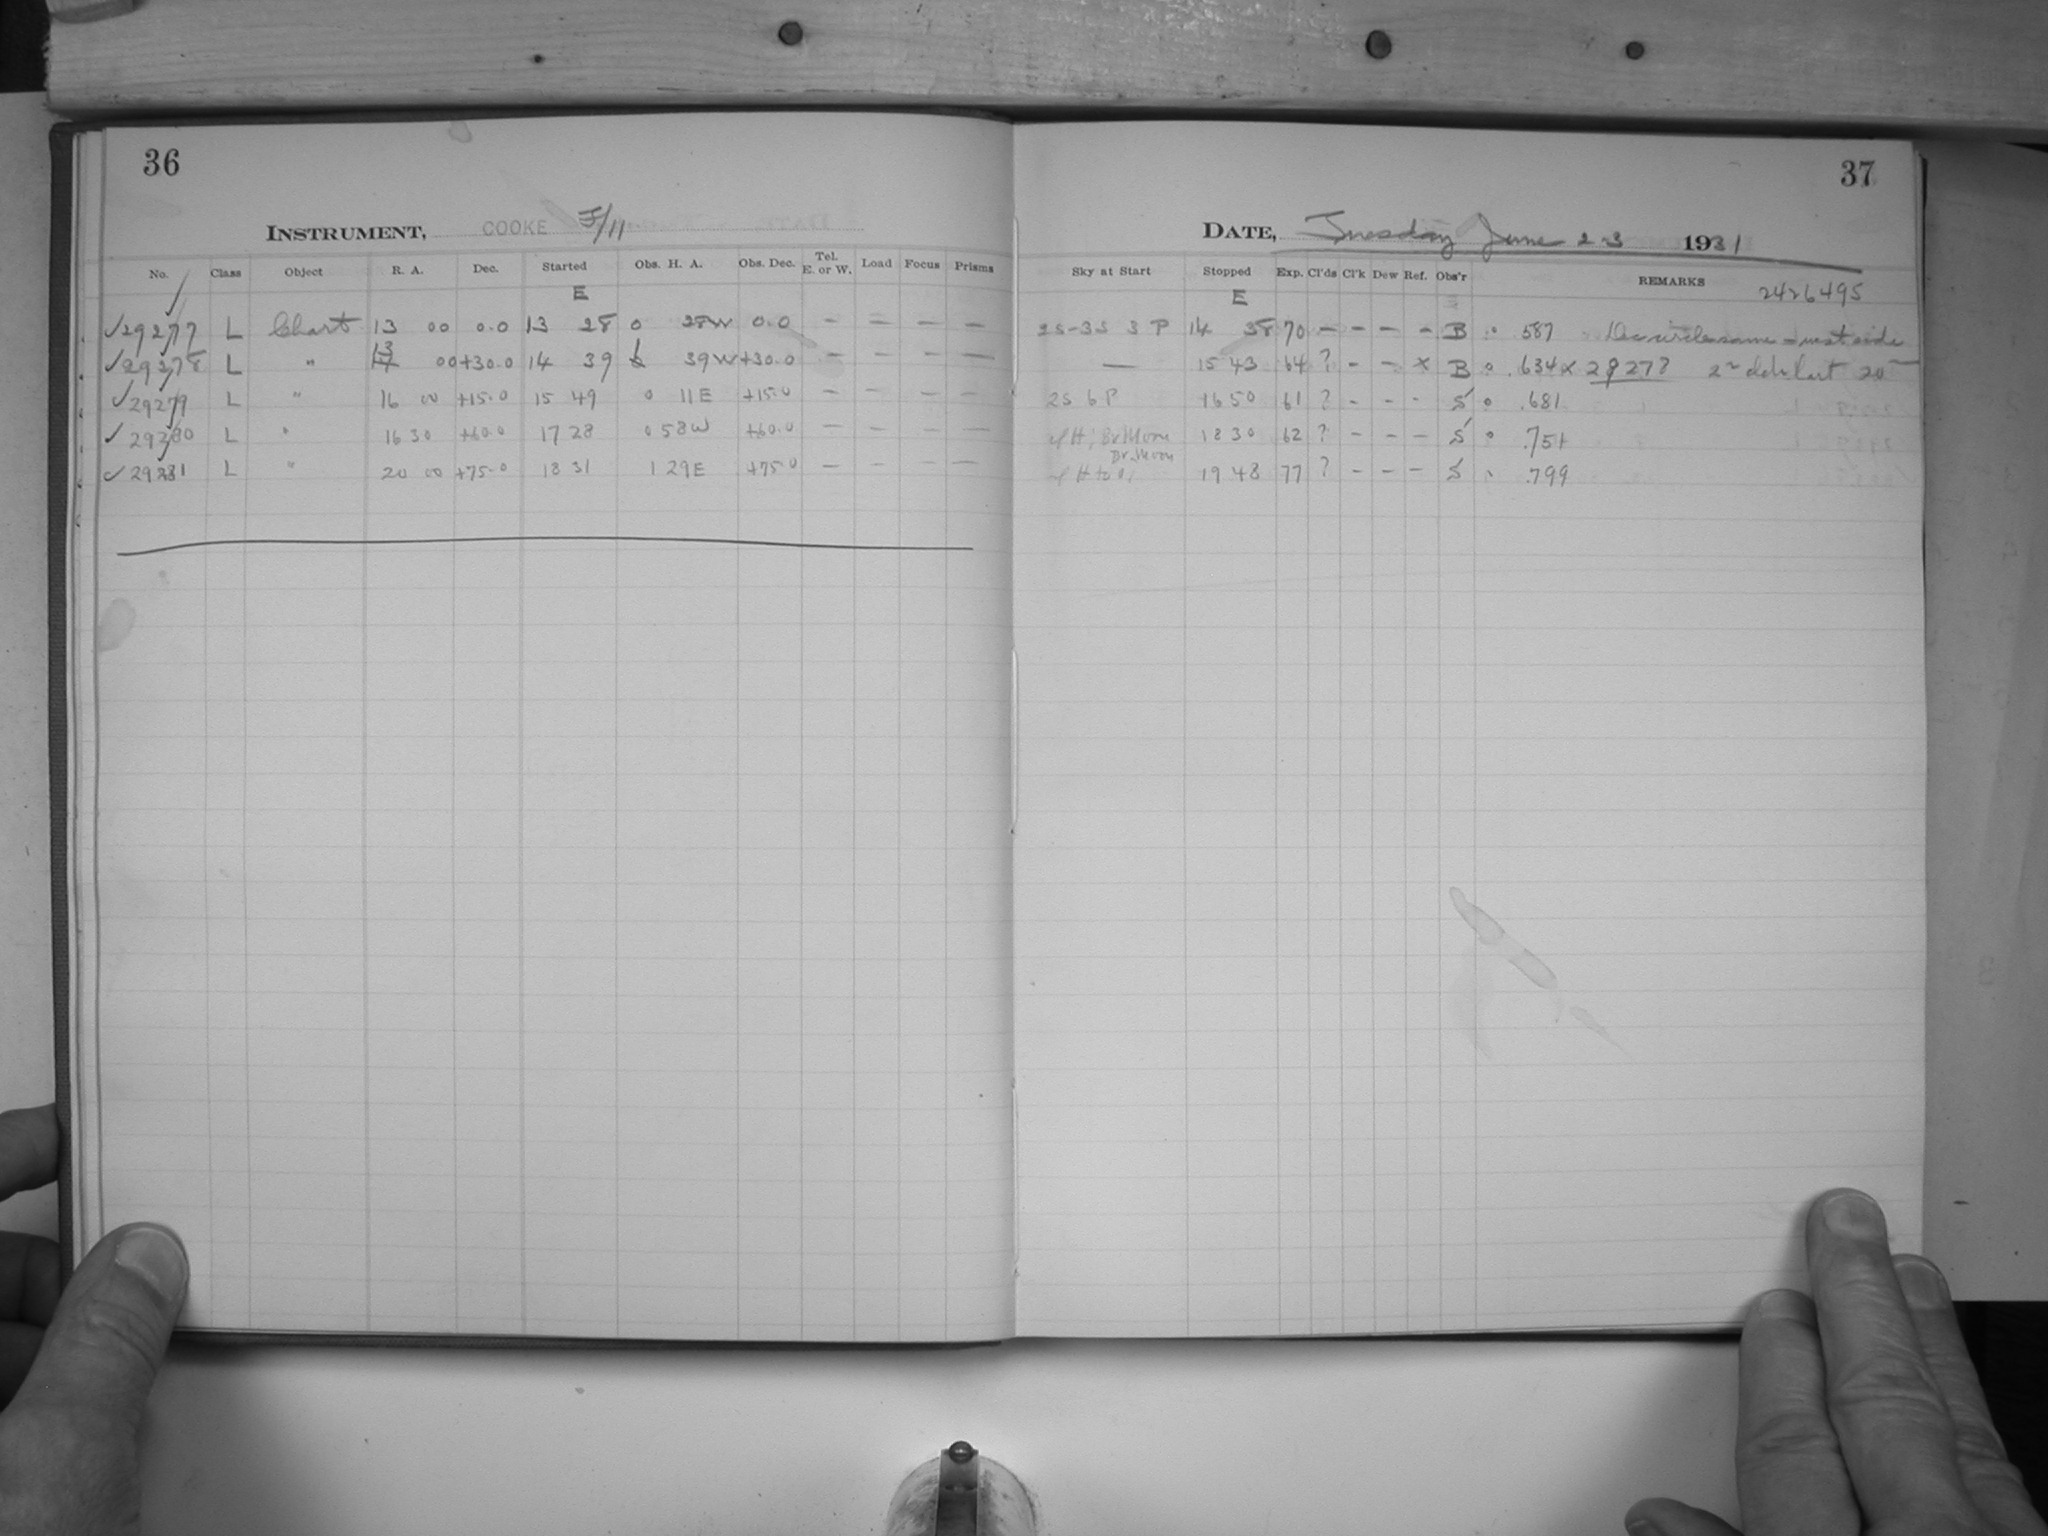 36
37
INSTRUMENT, COOKE F/11
DATE, Tuesday June 23 1931
No. Class Object R. A. Dec. Started Obs. H. A. Obs. Dec. Tel. E. or W. Load Focus Prisms
Sky at Start Stopped Exp. Cl'ds Cl'k Dew Ref. Obs'r REMARKS
E
E 2426495
✓29277 L Chart 13 00 0.0 13 28 0 28W 0.0 – – – – 2S-3S 3 P 14 38 70 – – – – B .587 Dec circle same – west side
✓29278 L " 13 00 +30.0 14 39 1 39W +30.0 – – – – — 15 43 64 ? – – x B .634 x 29277
✓29279 L " 16 00 +15.0 15 49 0 11E +15.0 – – – – 2S 6P 16 50 61 ? - - - S .681
✓29280 L " 16 30 +60.0 17 28 0 58W +60.0 – – – – Br Moon 18 30 62 ? – – – S .751
✓29281 L " 20 00 +75.0 18 31 1 29E +75.0 – – – – Br. Moon 19 48 77 ? – – – S .799